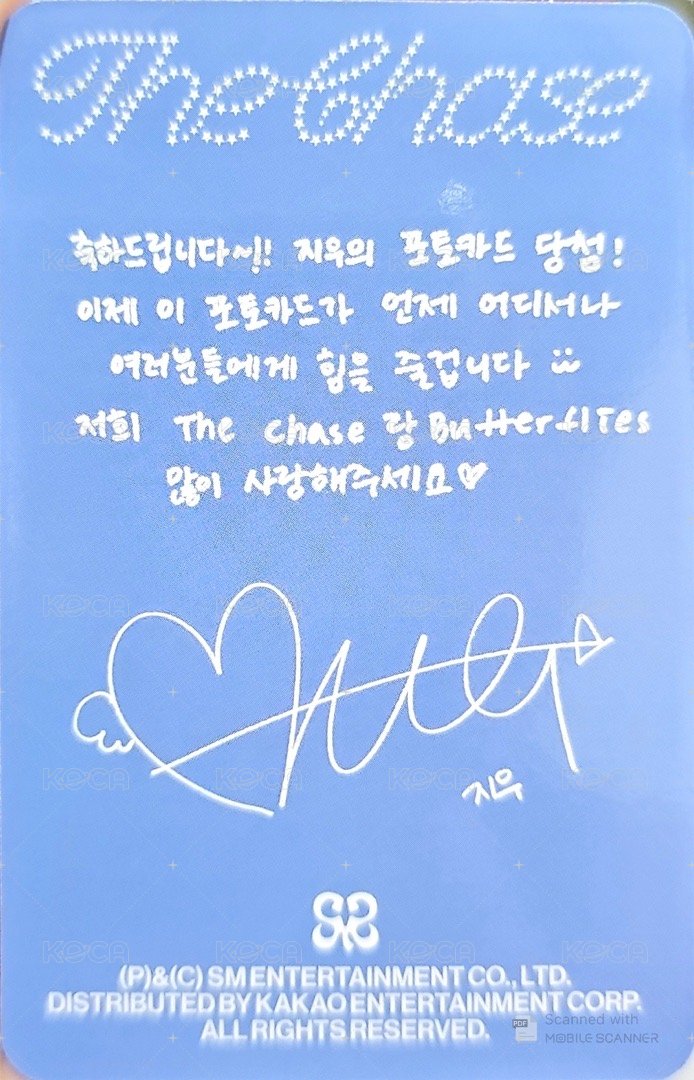 The Chase
축하드립니다~!! 지우의 포토카드 당첨!
이제 이 포토카드가 언제 어디서나
여러분들에게 힘을 줄겁니다 :)
저희 The Chase 랑 Butterflies
많이 사랑해주세요♡
지우
(P)&(C) SM ENTERTAINMENT CO., LTD.
DISTRIBUTED BY KAKAO ENTERTAINMENT CORP.
ALL RIGHTS RESERVED.
PDF Scanned with
MOBILE SCANNER
KOCA